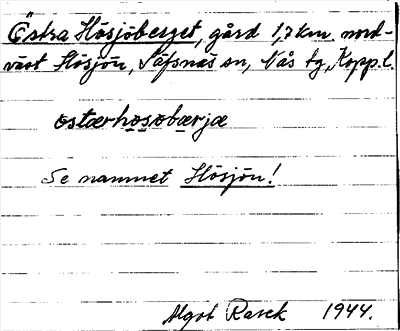 Östra Hösjöberget, gård 1,7 km. nord-
väst Hösjön, Säfsnäs sn, Nås tg, Kopp.l.
ostærhosobærjæ
Se namnet Hösjön!
Algot Rasck 1944.